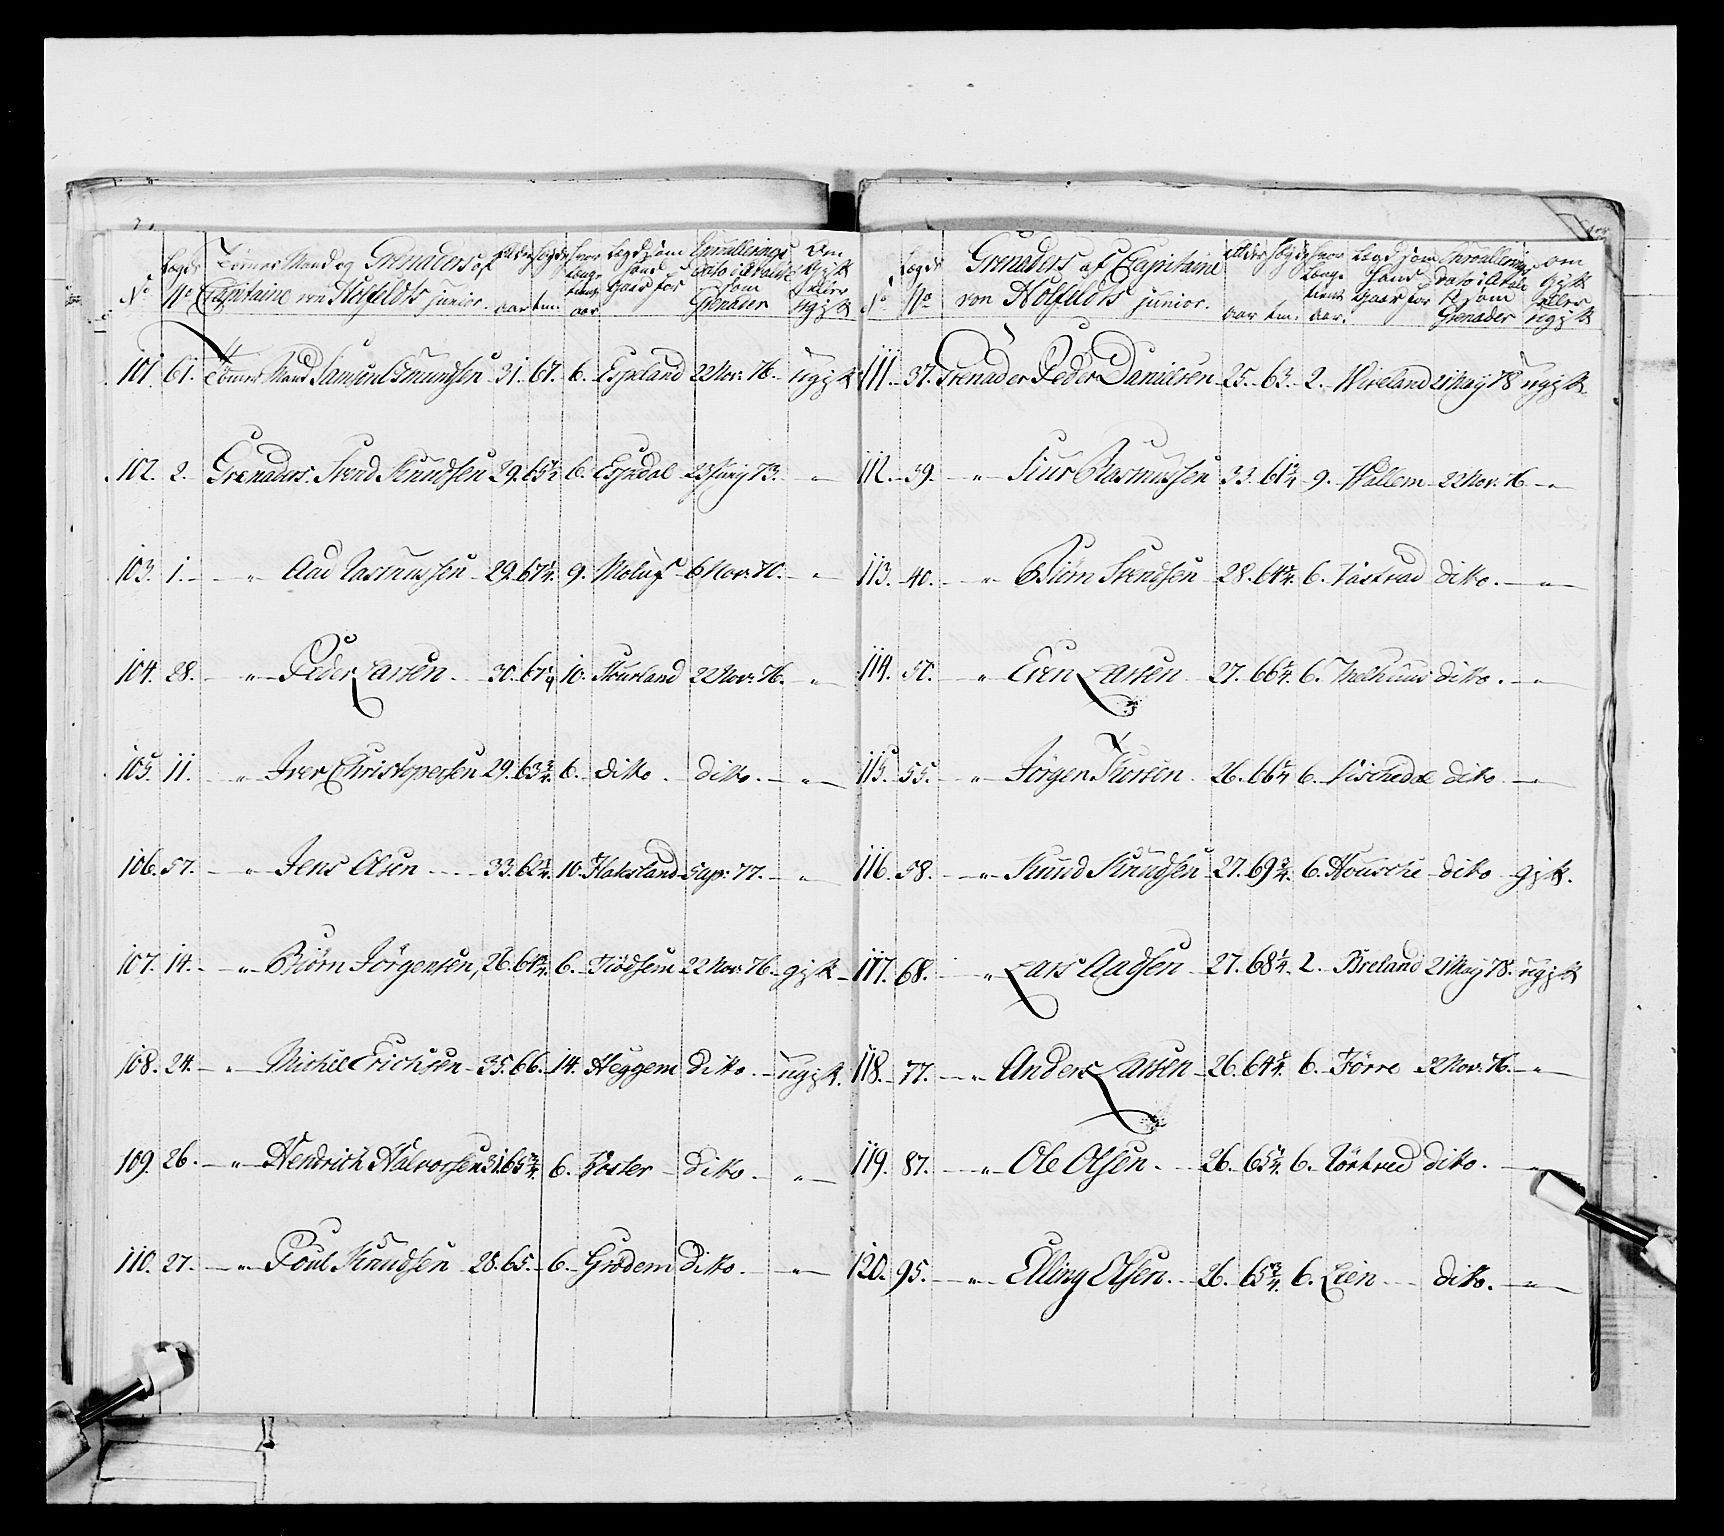 No
Legds No
Tömmermand og Grenaders af
Capitaine von Holfeldts junior.
Alder aar
Høyde tm:
hvor lenge tient aar
Legd som hand staar for
Enroullerings dato i
som Grenader
om gift eller ugift
101. 61. Tömmer Mand Samuel Omundsen 31. 67. 6. Espeland 22 Nov: 76. ugift
102. 2. Grenaders. Svend Knudsen 29. 65 1/2 6. Espedal 23 Junij 73. "
103. 1. " Aad Rasmussen 29. 67 1/4. 9. Moluf 6 Nov: 70. "
104. 28. " Peder Larsen. 30. 67 1/4 10. Skurland 22 Nov: 76. "
105. 11. " Iver Christopersen 29. 63 3/4. 6. ditto. ditto. "
106. 57. " Jens Olsen 33. 62 3/4. 10. Haksland 5 apr: 77. "
107. 14. " Biörn Jörgensen, 26. 64 3/4. 6. Fiödsem 22 Nov: 76. gift
108. 24. " Michel Erichsen 35. 66. 14. Heggem ditto. ugift.
109. 26. " Hendrich Halvorsen 31. 65 3/4. 6. Voster ditto. "
110. 27. " Poul Knudsen 28. 65. 6. Grödem ditto. "
No
Legds No
Grenaders af Capitaine
von Holfeldts junior.
Alder aar
Høyde tm:
hvor lenge tient aar.
Legd som hand staar for
Enroullerings dato i
som Grenader
om gift eller ugift
111. 37. Grenader Peder Danielsen 25. 63. 2. Vereland 21 Maij 78 ugift.
112. 39. " Siur Rasmussen 33. 61 3/4. 9. Wallem 22 Nov: 76 "
113. 40. " Biörn Svendsen 28. 64 1/4. 6. Tastvad ditto. "
114. 51. " Even Larsen 27. 66 1/4. 6. Melhuus ditto. "
115. 55. " Jörgen Siursen 26. 66 1/4 6. ditto "
116. 58. " Knud Knudsen 27. 69 3/4. 6. Housche ditto gift.
117. 68. " Lars Aadsen 27. 68 1/4. 2. Breland 21 Maij 78. ugift
118. 77. " Anders Larsen 26. 64 1/4. 6. Törre 22 Nov: 76. "
119. 87. " Ole Olsen. 26. 65 1/4. 6. ditto. "
120. 95. " Elling Elsen. 26. 65 3/4. 6. Lien ditto. "